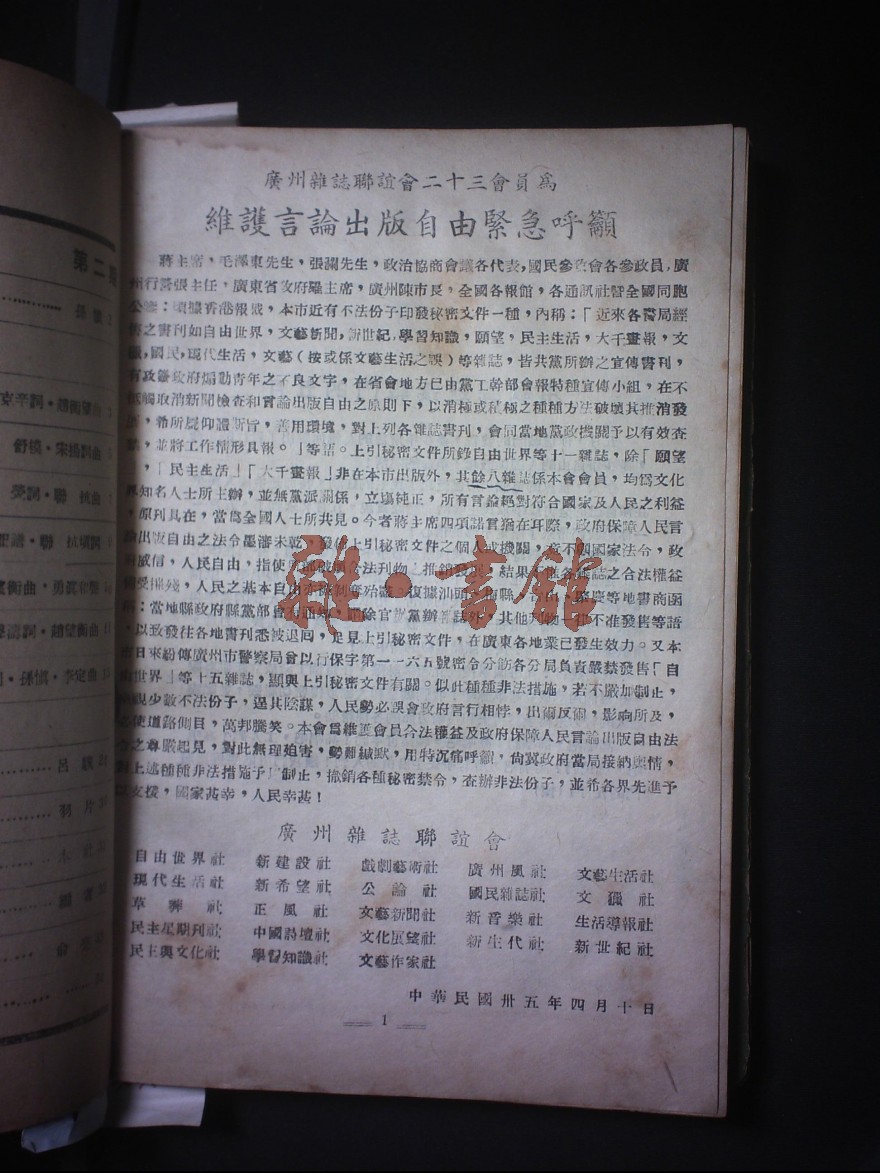 廣州雜誌聯誼會二十三會員爲
維護言論出版自由緊急呼籲
蔣主席，毛澤東先生，張瀾先生，政治協商會議各代表，國民參政會各參政員，廣
州行營張主任，廣東省政府羅主席，廣州陳市長，全國各報館，各通訊社暨全國同胞
公鑒：頃據香港報載，本市近有不法份子印發秘密文件一種，內稱：「近來各書局經
售之書刊如自由世界，文藝新聞，新世紀，學習知識，願望，民主生活，大千畫報，文
，國民，現代生活，文藝（按或係文藝生活之誤）等雜誌，皆共黨所辦之宣傳書刊，
有攻擊政府煽動青年之不良文字，在省會地方已由黨工幹部會報特種宣傳小組，在不
抵觸取消新聞檢查和言論出版自由之原則下，以消極或積極之種種方法破壞其推消發
，希所屬仰體斯旨，善用環境，對上列各雜誌書刊，會同當地黨政機關予以有效查
，並將工作情形具報。」等語。上引秘密文件所錄自由世界等十一雜誌，除「願望
」，「民主生活」「大千畫報」非在本市出版外，其餘八雜誌係本會會員，均爲文化
界知名人士所主辦，並無黨派關係，立塲純正，所有言論絕對符合國家及人民之利益
，原刊具在，當爲全國人士所共見。今者蔣主席四項諾言猶在耳際，政府保障人民言
論出版自由之法令墨瀋未乾，上引秘密文件之個人或機關，竟不顧國家法令，政
府威信，人民自由，指使所屬破壞合法刊物之推銷發展，結果不僅各雜誌之合法權益
橫受摧殘，人民之基本自由亦被剝奪殆盡。復據汕頭、梅縣、台山、等地書商函
稱：當地縣政府縣黨部會有通知，除官辦黨辦雜誌外，其他刊物一律不准發售等語
，以致發往各地書刊悉被退囘，足見上引秘密文件，在廣東各地業已發生效力。又本
市日來紛傳廣州市警察局會以行保字第一一六五號密令分飭各分局負責嚴禁發售「自
由世界」等十五雜誌，顯與上引秘密文件有關。似此種種非法措施，若不嚴加制止，
坐視少數不法份子，逞其陰謀，人民勢必誤會政府言行相悖，出爾反爾，影响所及，
必使道路側目，萬邦騰笑。本會爲維護會員合法權益及政府保障人民言論出版自由法
令之尊嚴起見，對此無理廹害，勢難緘默，用特沉痛呼籲，尙冀政府當局接納輿情，
對上述種種非法措施予以制止，撤銷各種秘密禁令，查辦非法份子，並希各界先進予
以支援，國家甚幸，人民幸甚！
廣州雜誌聯誼會
自由世界社 新建設社 戲劇藝術社 廣州風社 文藝生活社
現代生活社 新希望社 公論社 國民雜誌社 文獵社
草莽社 正風社 文藝新聞社 新音樂社 生活導報社
民主星期刊社 中國詩壇社 文化展望社 新生代社 新世紀社
民主與文化社 學習知識社 文藝作家社
中華民國卅五年四月十日
I
雜·書館
第二